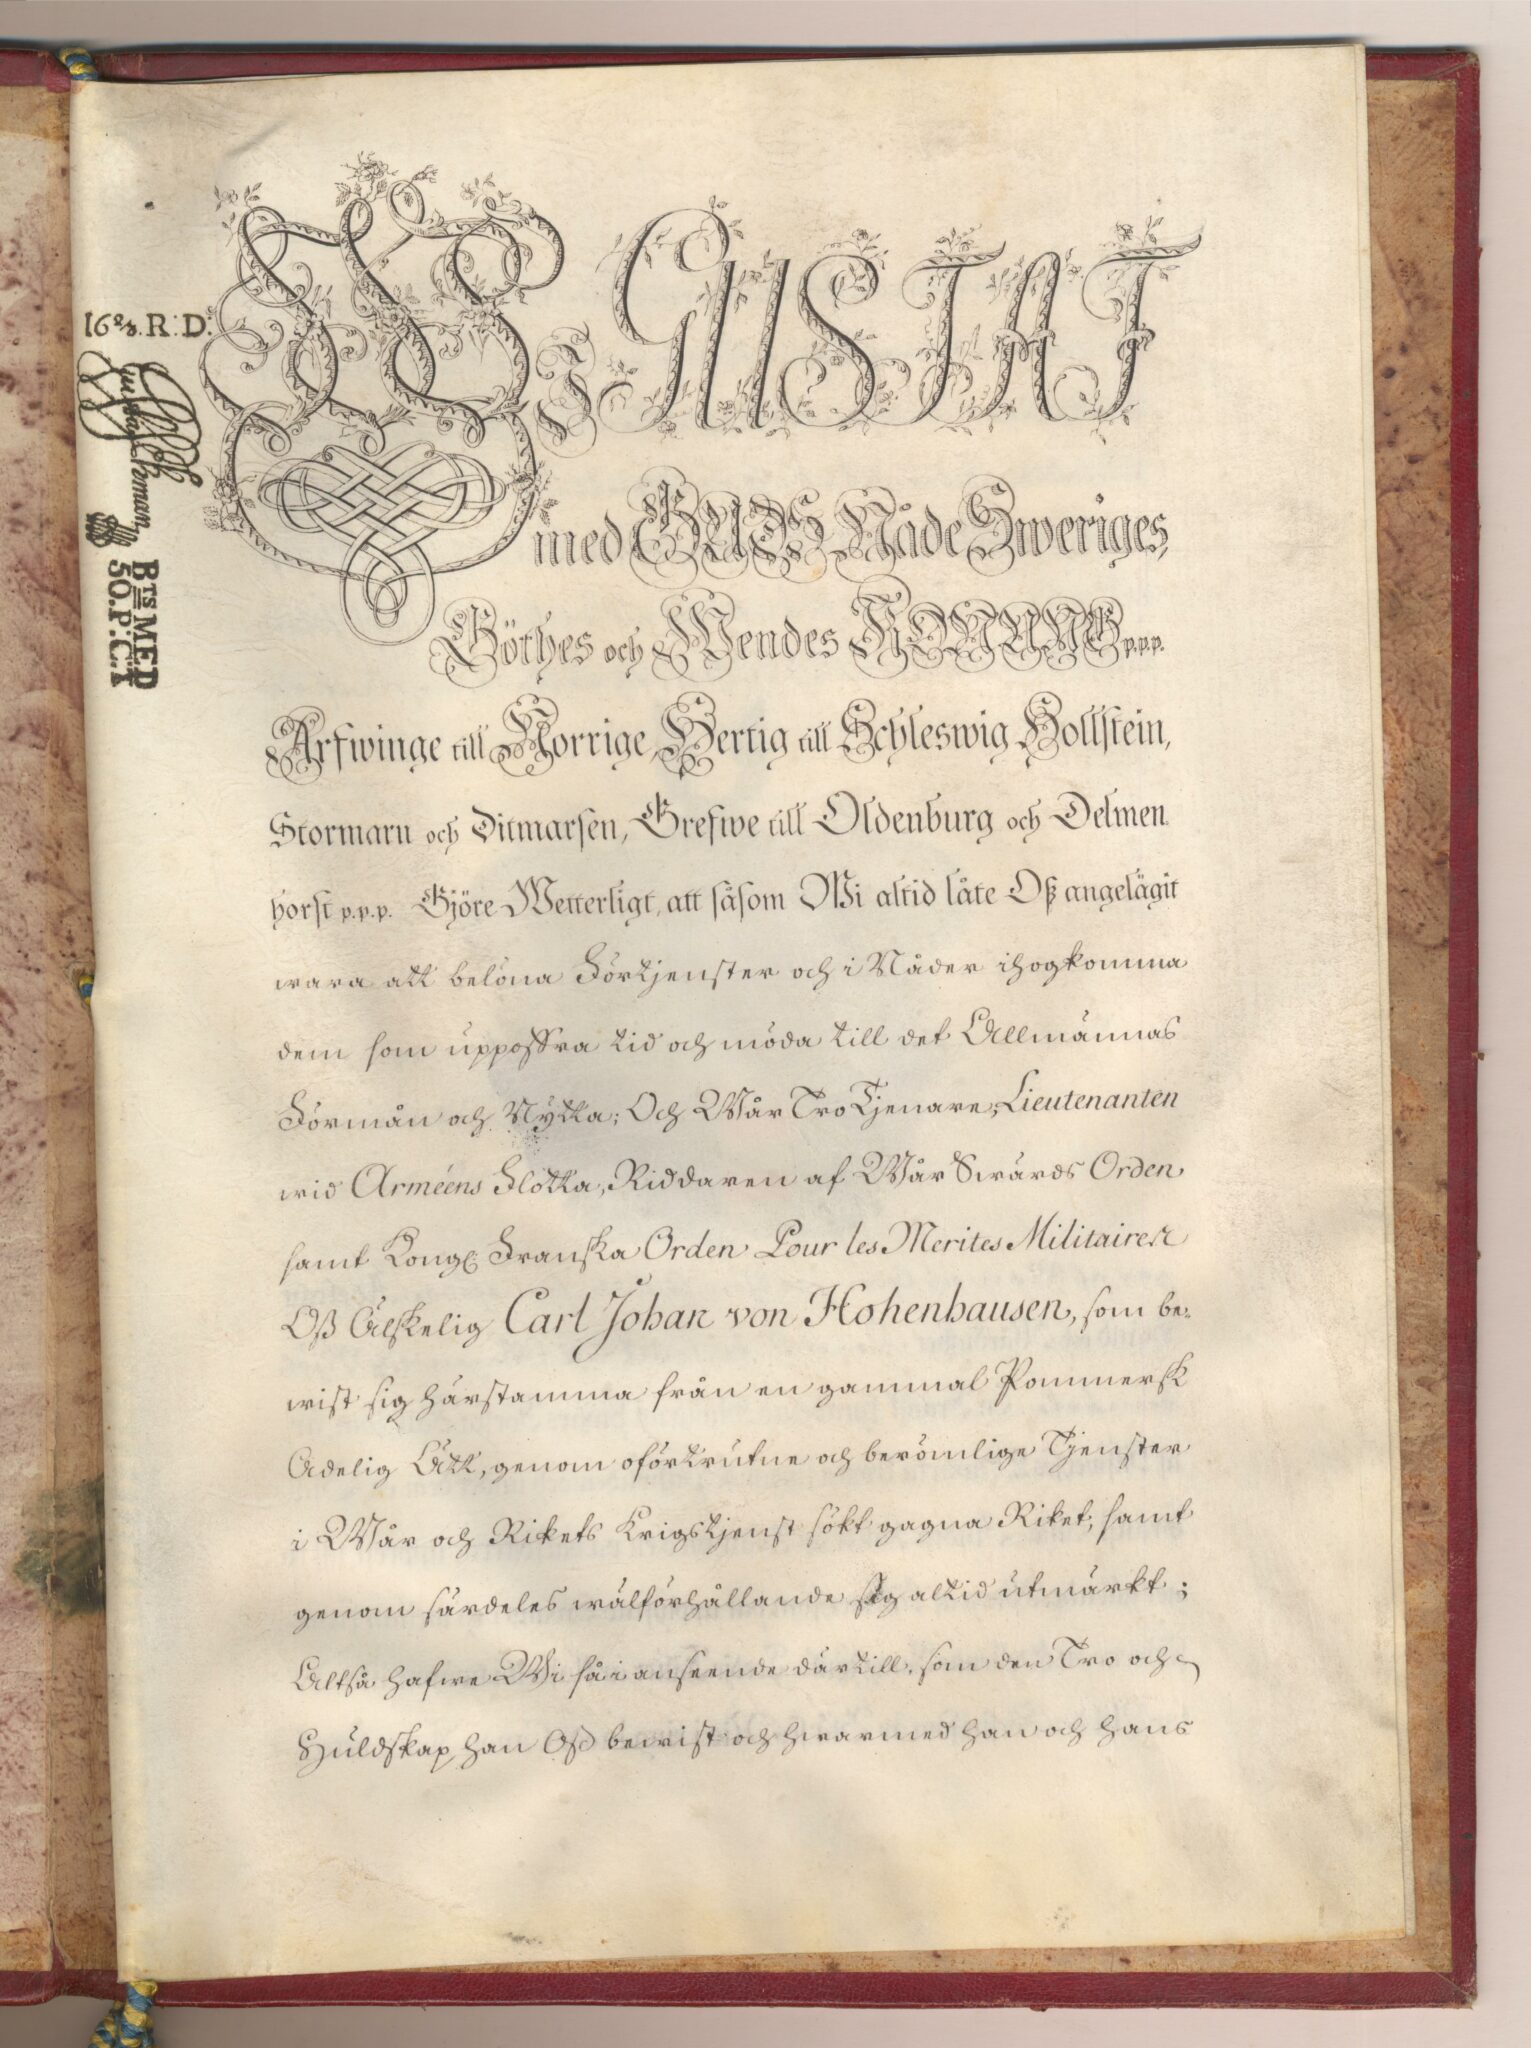 16⅔.R:D:
Gustaf Perman
BTS MED
50.P:C:T
Wi GUSTAF
med GUDS Nåde Sweriges,
Göthes och Wendes KONUNG p.p.p.
Arfwinge till Norrige, Hertig till Schleswig Hollstein,
Stormarn och Ditmarsen, Grefwe till Oldenburg och Delmen
horst p.p.p. Giöre Wetterligt, att såsom Wi altid låte Oß angelägit
wara att belöna Förtjenster och i Nåder ihogkomma
dem som uppoffra tid och möda till det Allmännas
Förmån och Nytta; Och Wår Tro Tjenare, Lieutenanten
wid Arméens Flotta, Riddaren af Wår Swärds Orden
samt Kongl Franska Orden Pour les Merites Militaires
Oß Älskelig Carl Johan von Hohenhausen, som be-
wist sig härstamma från en gammal Pommersk
Adelig Ätt, genom oförtrutne och berömlige Tjenster
i Wår och Rikets Krigstjenst sökt gagna Riket, samt
genom särdeles wälförhållande sig altid utmärkt;
Altså hafwe Wi så i anseende därtill, som den Tro och
Huldskap han Oß bewist och hwarmed han och hans